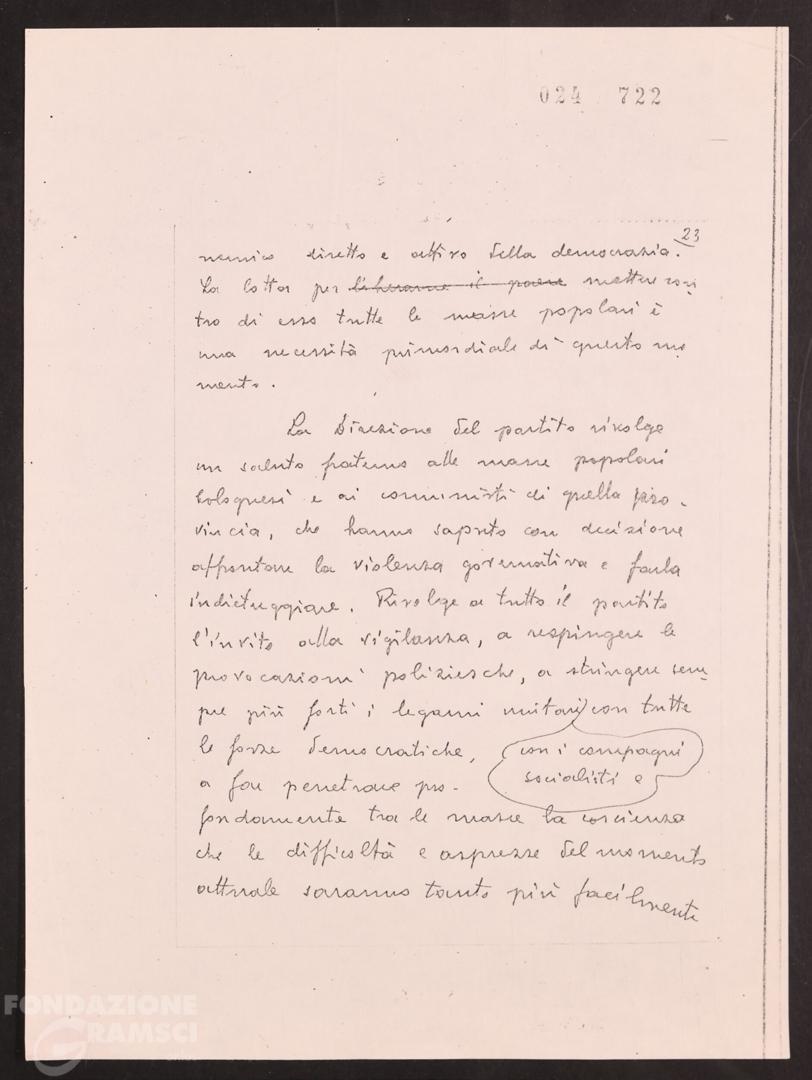 024 722
23
nemico diretto e attivo della democrazia.
La lotta per liberarne il paese mettere con-
tro di esso tutte le masse popolari è
una necessità primordiale di questo mo
mento.
La Direzione del partito rivolge
un saluto fraterno alle masse popolari
bolognesi e ai comunisti di quella pro-
vincia, che hanno saputo con decisione
affrontare la violenza governativa e farla
indietreggiare. Rivolge a tutto il partito
l'invito alla vigilanza, a respingere le
provocazioni poliziesche, a stringere sem-
pre più forti i legami unitari con tutte
con i compagni
socialisti e
le forze democratiche,
a far penetrare pro-
fondamente tra le masse la coscienza
che le difficoltà e asprezze del momento
attuale saranno tanto più facilmente
FONDAZIONE
GRAMSCI